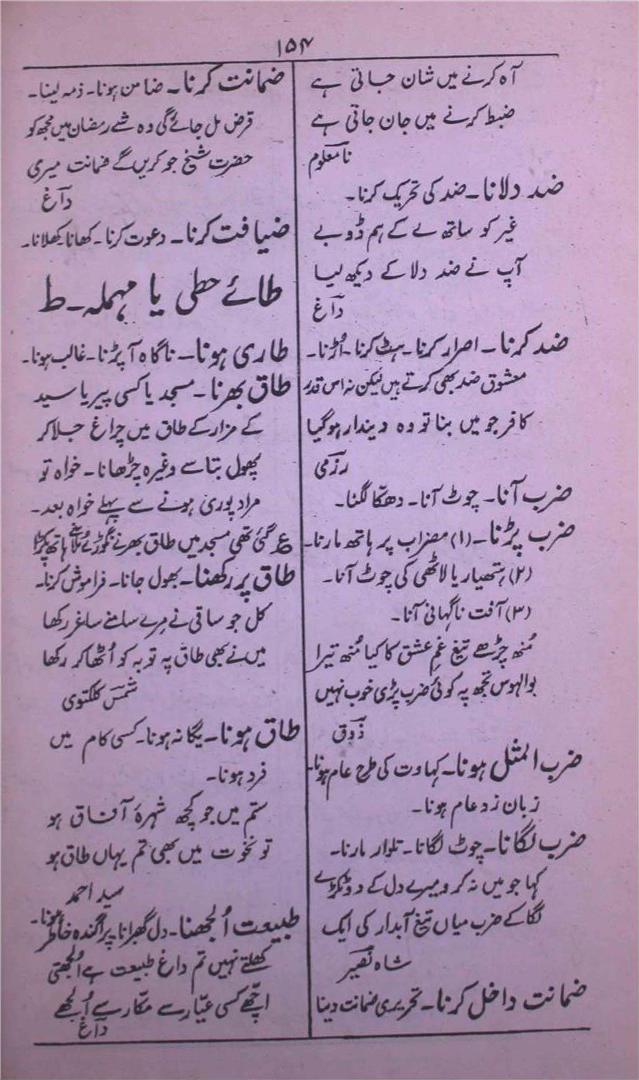 ۱۵۴
آہ کرنے میں شان جاتی ہے
ضبط کرنے میں جان جاتی ہے
نامعلوم
ضد دلانا۔ ضد کی تحریک کرنا۔
غیر کو ساتھ لے کے ہم ڈوبے
آپ نے ضد دلا کے دیکھ لیا
داغ
ضد کرنا۔ اصرار کرنا۔ ہٹ کرنا۔ اڑنا۔
معشوق ضد بھی کرتے ہیں لیکن نہ اس قدر
کافر جو میں بنا تو وہ دیندار ہو گیا
رزمی
ضرب آنا۔ چوٹ آنا۔ دھکا لگنا۔
ضرب پڑنا۔ (۱) مضراب پر ہاتھ مارنا۔
(۲) ہتھیار یا لاٹھی کی چوٹ آنا۔
(۳) آفت ناگہانی آنا۔
مُنھ چڑھے تیغِ غمِ عشق کا کیا مُنھ تیرا
بوالہوس تجھ پہ کوئی ضرب پڑی خوب نہیں
ذوق
ضرب المثل ہونا۔ کہاوت کی طرح عام ہونا۔
زبان زد عام ہونا۔
ضرب لگانا۔ چوٹ لگانا۔ تلوار مارنا۔
کہا جو میں نہ کرو میرے دل کے دو ٹکڑے
لگا کے ضرب میاں تیغ آبدار کی ایک
شاہ نصیر
ضمانت داخل کرنا۔ تحریری ضمانت دینا
ضمانت کرنا۔ ضامن ہونا۔ ذمہ لینا۔
قرض مل جائے گی وہ شے رمضان میں مجھ کو
حضرت شیخ جو کریں گے ضمانت میری
داغ
ضیافت کرنا۔ دعوت کرنا۔ کھانا کھلانا۔
طائے حطی یا مہملہ۔ ط
طاری ہونا۔ ناگاہ آ پڑنا۔ غالب ہونا۔
طاق بھرنا۔ مسجد یا کسی پیر یا سید
کے مزار کے طاق میں چراغ جلا کر
پھول بتاسے وغیرہ چڑھانا۔ خواہ تو
مراد پوری ہونے سے پہلے خواہ بعد۔
ع گئی تھی مسجد میں طاق بھرنے نگوڑے مُلّا نے ہاتھ پکڑا
طاق پر رکھنا۔ بھول جانا۔ فراموش کرنا۔
کل جو ساقی نے مرے سامنے ساغر رکھا
میں نے بھی طاق پہ توبہ کو اُٹھا کر رکھا
شمس کلکتوی
طاق ہونا۔ یگانہ ہونا۔ کسی کام میں
فرد ہونا۔
ستم میں جو کچھ شہرۂ آفاق ہو
تو نخوت میں بھی تم یہاں طاق ہو
سید احمد
طبیعت اُلجھنا۔ دل گھبرانا۔ پراگندہ خاطر ہونا۔
کھلتے نہیں تم داغ طبیعت ہے اُلجھتی
اچھے کسی عیّار سے مکّار سے اُلجھے
داغ